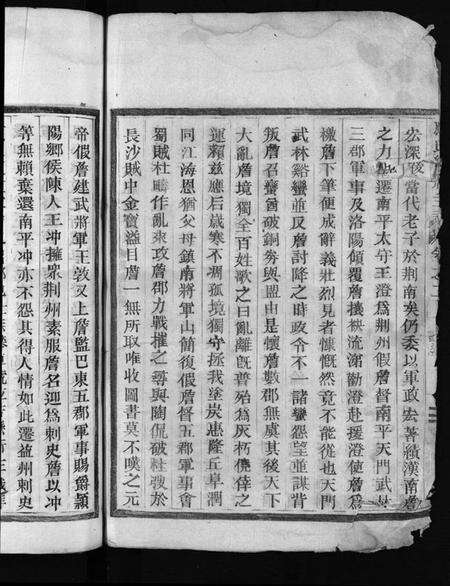 宏深後當代老子於荆南矣仍委以軍政宏著績漢南詹
之力也遷南平太守王澄為荆州假詹督南平天門武
三郡軍事及洛陽傾覆詹攘袂流涕勸澄赴援澄使詹爲
檄詹下筆便成辭義壯烈見者慷慨然竟不能從也天門
武林谿蠻並反詹討降之時政令不一諸蠻怨望並謀背
叛詹召蠻酋破銅券與盟由是懷詹數郡無虞其後天下
大亂詹境獨全百姓歌之曰亂離旣普殆爲灰朽僥倖之
運賴兹應后歲寒不凋孤境獨守拯我塗炭惠隆丘阜潤
同江海恩猶父母鎮南將軍山簡復假詹督五郡軍事會
蜀賊杜疇作亂來攻詹郡力戰摧之尋與陶侃破杜弢於
長沙賊中金寶溢目詹一無所取唯收圖書莫不嘆之元
帝假詹建武將軍王敦又上詹監巴東五郡軍事賜爵潁
陽鄉侯陳人王冲擁衆荆州素服詹名迎爲刺史詹以冲
等無賴棄還南平冲亦不怨其得人情如此遷益州刺史